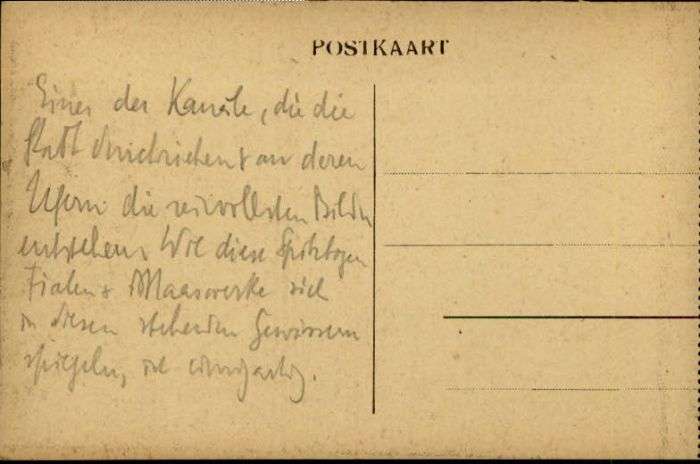 POSTKAART
Einer der Kanäle, die die
Stadt durchziehen & an deren
Ufern die reizvollsten Bilder
entstehen. Wie diese Spitzbogen
Fialen & Maaswerke sich
in diesen stehenden Gewässern
spiegeln, ist einzigartig.